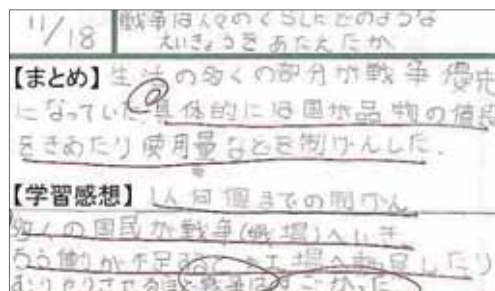 11/18 戦争は人々のくらしにどのような
えいきょうをあたえたか
【まとめ】生活の多くの部分が戦争優先
になっていた@具体的には国が品物の値段
をきめたり使用量などを制げんした.
【学習感想】1人何個までの制げん
多くの国民が戦争(戦場)へいき、
ろう働力が不足すると 工場へ動員したり
むりやりさせるほど戦争はすごかった